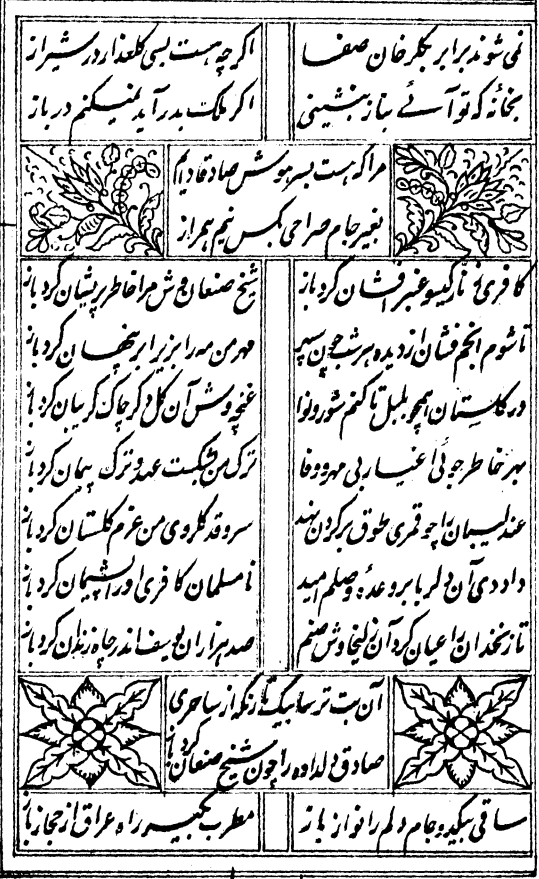 نمی شوند برابر بگلرخان صفا اگر چه هست بسی گلعذار در شیراز
بخانهٔ که تو آئے بناز بنشینی اگر ملک بدر آید نمیکنم در باز
مرا که هست بسر هوش صادقا دایم
بغیر جام صراحی بکس نیم همراز
کافری تا گیسو عنبر افشان کرد باز شیخ صنعان وش مرا خاطر پریشان کرد باز
تا شوم انجم فشان از دیده هر شب چون سپهر مهر من مه را بزیر ابر پنهان کرد باز
در گلستان همچو بلبل تا کنم شور و نوا غنچه وش آن گل دگر چاک گریبان کرد باز
بهر خاطر جوئی اغیار بی مهر و وفا ترک من بشکست عهد و ترک پیمان کرد باز
عندلیبان را چو قمری طوق بر گردن نهد سرو قد گلروی من عزم گلستان کرد باز
داد دی آن دلربا بر وعدهٔ وصلم امید نامسلمان کافری او را پشیمان کرد باز
تا زنخدان را عیان کرد آن زلیخا وش صنم صد هزاران یوسف اندر چاه زندان کرد باز
آن بت ترسا بیک تار نگه از ساحری
صادق دلداده را چون شیخ صنعان کرد باز
ساقی بگیر و جام دلم را نواز باز مطرب بگیر راه عراق از حجاز باز